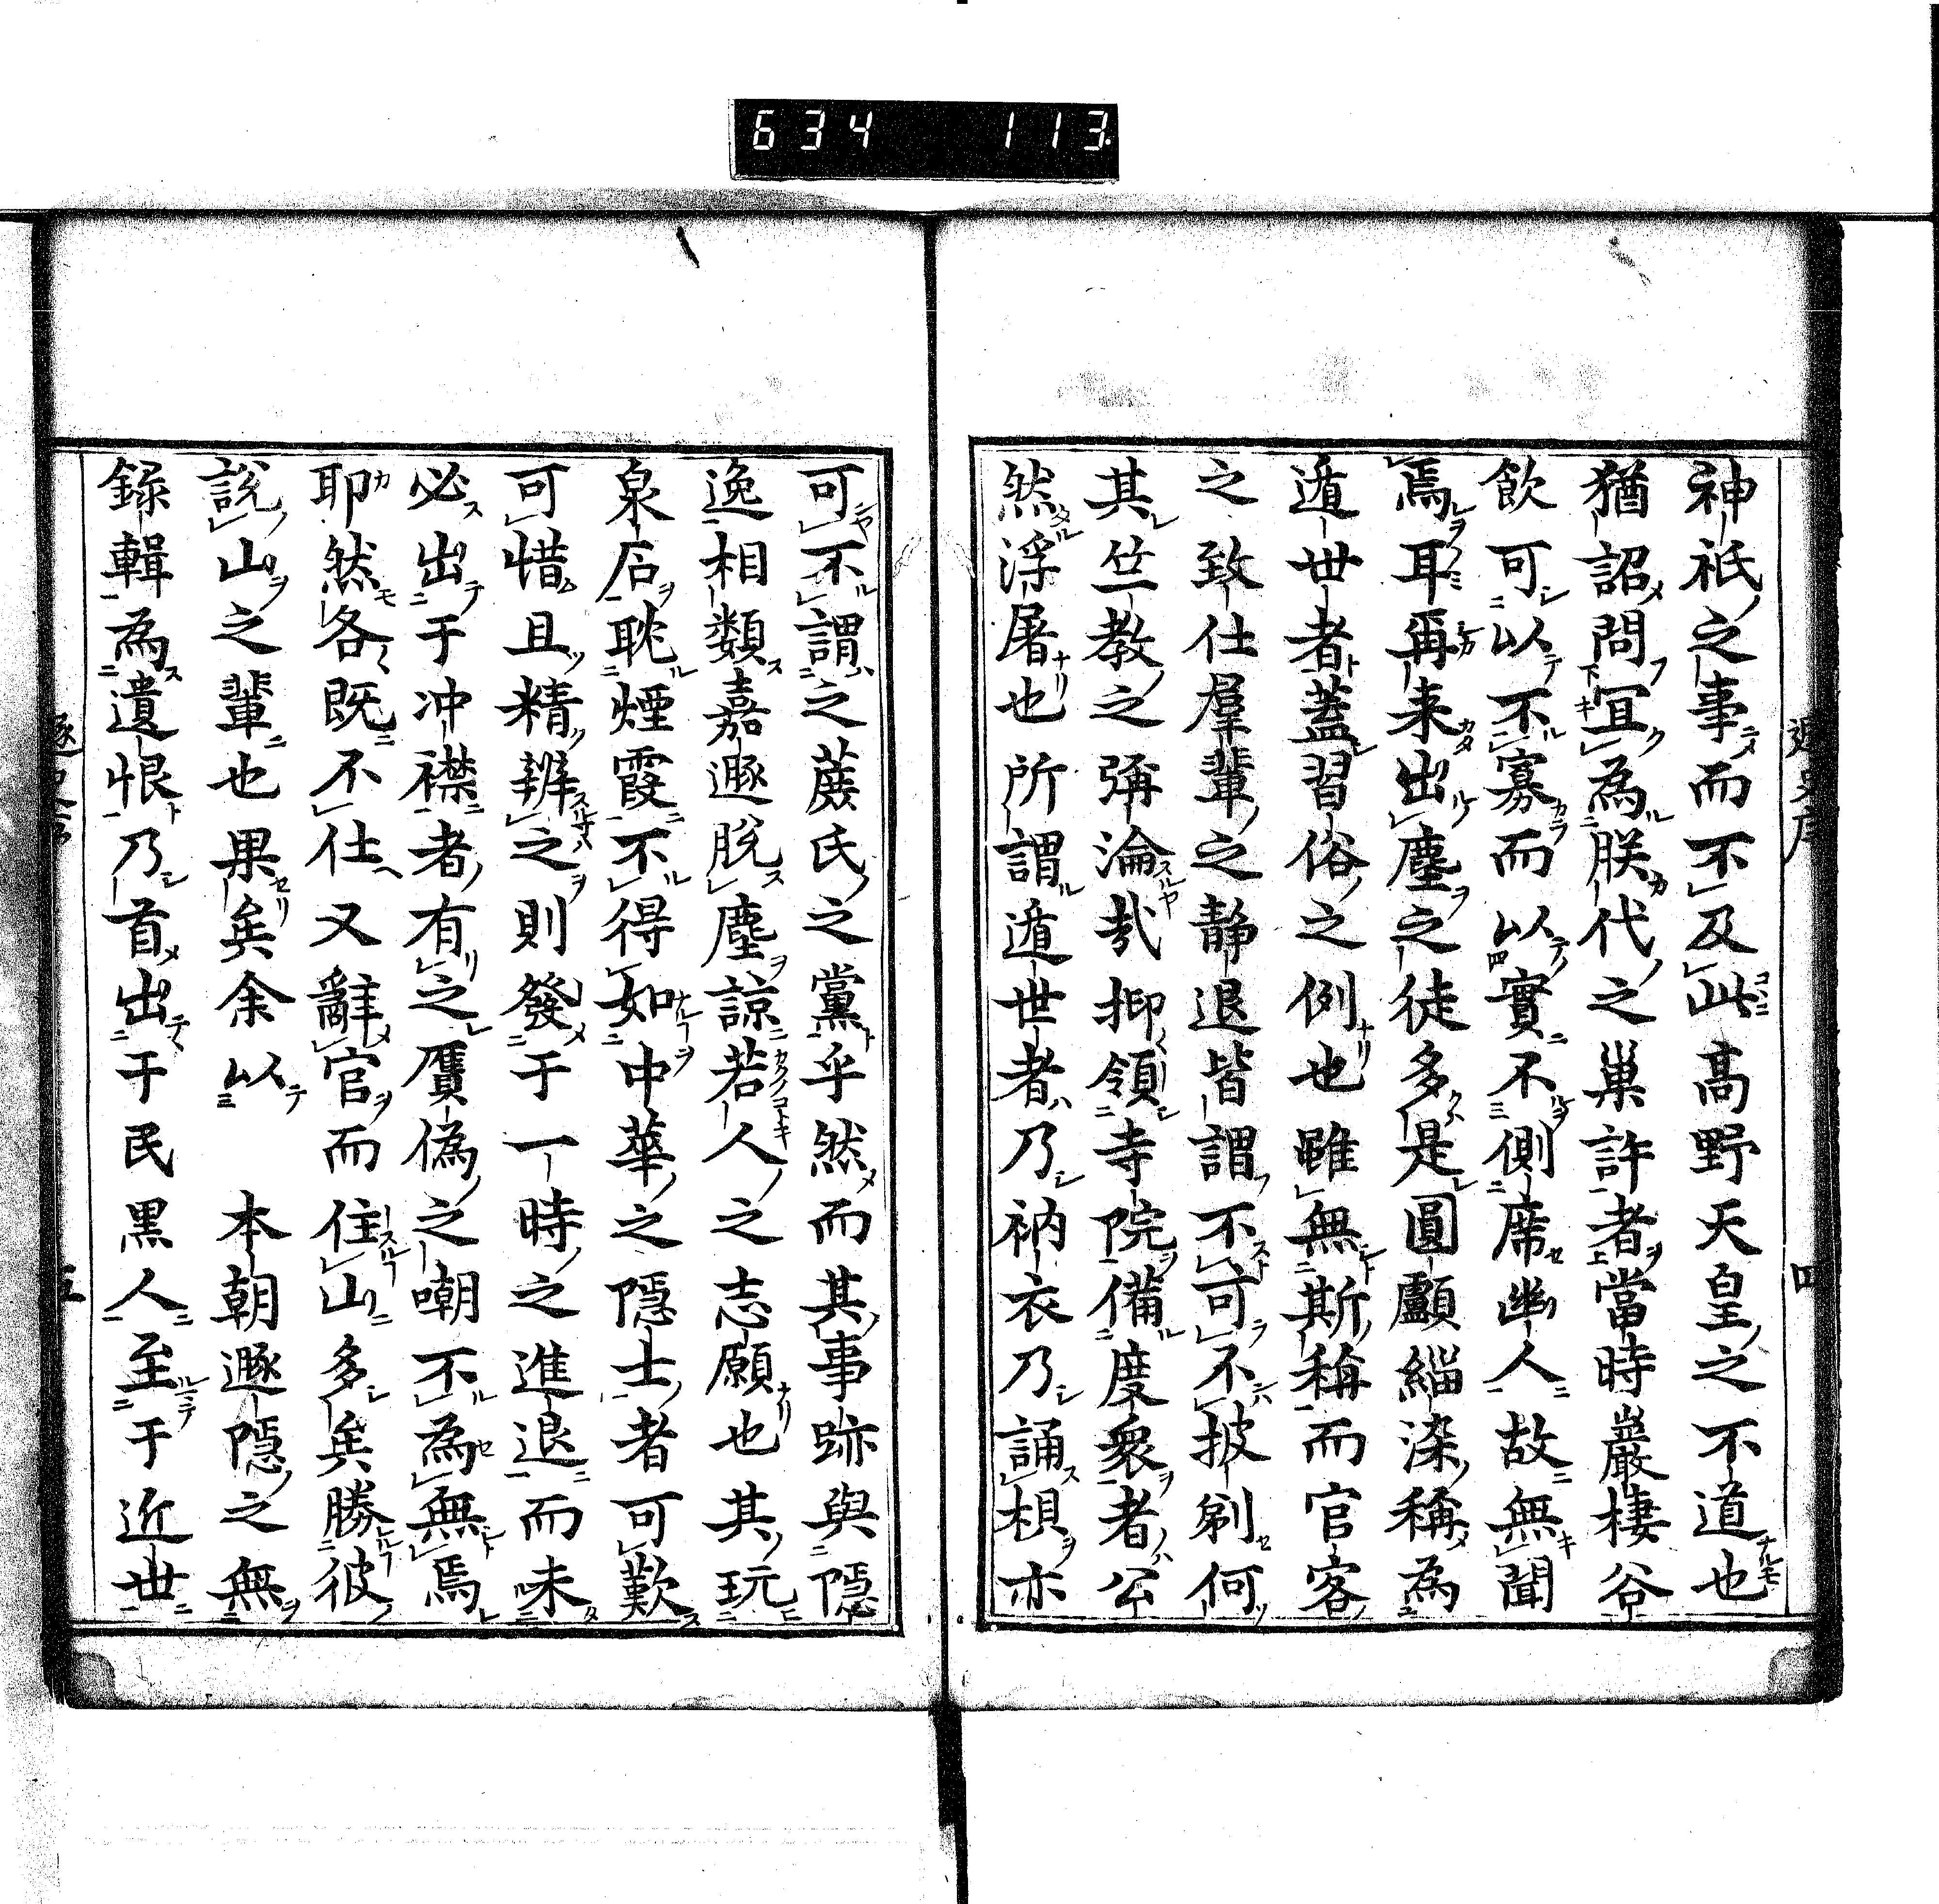 634 113
神祇之事而不及此高野天皇之不道也
猶詔問宜為朕代之巢許者當時巖棲谷
飲可以不寡而以實不側席幽人故無聞
焉耳爾来出塵之徒多是圓顱緇染稱為
遁世者蓋習俗之例也雖無斯稱而官客
之致仕群輩之靜退皆謂不可不披剃何
其竺教之彌淪哉抑領寺院備度衆者公
然浮屠也所謂遁世者乃衲衣乃誦梖亦
可不謂之蔟氏之黨乎然而其事跡與隱
逸相類嘉遯脫塵諒若人之志願也其玩
泉石耽煙霞不得如中華之隱士者可歎
可惜且精辨之則發于一時之進退而未
必出于冲襟者有之贋偽之嘲不為無焉
耶然各既不仕又辭官而住山多矣勝彼
說山之輩也果矣余以 本朝遯隱之無
錄輯為遺恨乃首出于民黑人至于近世